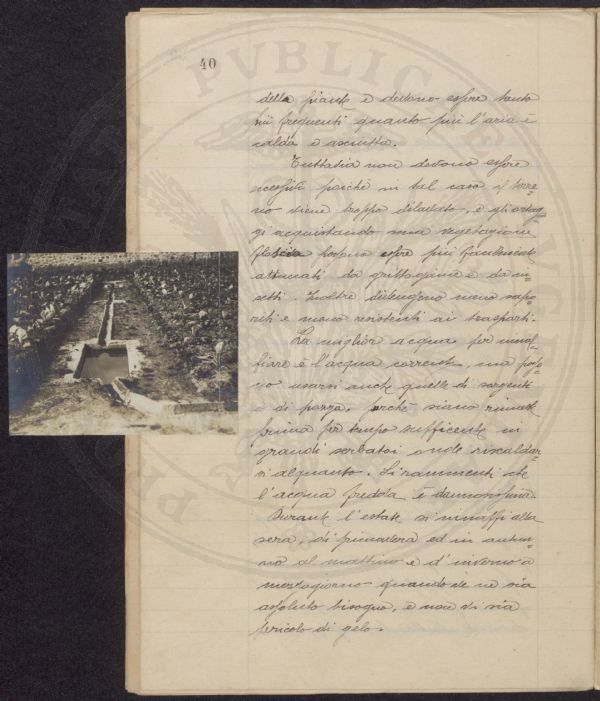 40
delle piante e devono essere tanto
più frequenti quanto più l'aria è
calda e asciutta.
Tuttavia non devono essere
eccessivi poichè in tal caso il terre-
no viene troppo dilavato, e gli ortag-
gi acquistando una vegetazione
floscia possono essere più facilmente
attaccati da crittogame e da in-
setti. Inoltre divengono meno sapo-
riti e meno resistenti ai trasporti.
La migliore acqua per innaf-
fiare è l'acqua corrente, ma posso-
no usarsi anche quelle di sorgenti
e di pozzo, perchè siano rimaste
prima per tempo sufficente in
grandi serbatoi onde riscaldar-
si alquanto. Si rammenti che
l'acqua fredda è dannosissima.
Durante l'estate si innaffi alla
sera, di primavera ed in autun-
no al mattino e d'inverno a
mezzogiorno quando ve ne sia
assoluto bisogno, e non vi sia
pericolo di gelo.